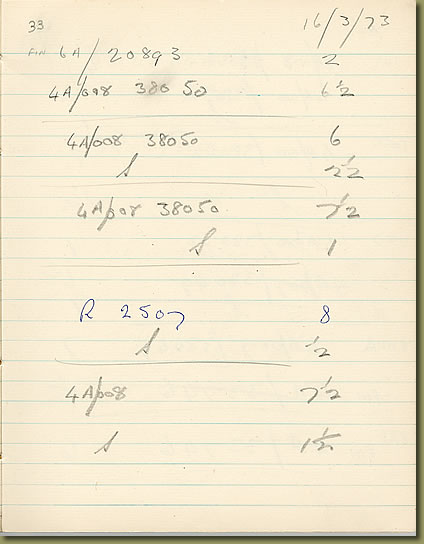 33 16/3/73
FIN 6A/20893 2
4A/008 38050 6½
4A/008 38050 6
S 2½
4A/008 38050 7½
S 1
R 2507 8
S ½
4A/008 7½
S 1½